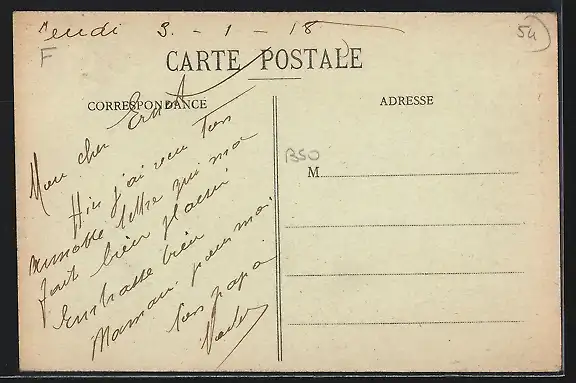 Jeudi 3 - 1 - 18
54
F
CARTE POSTALE
CORRESPONDANCE
ADRESSE
Mon cher Ernest
Hier j'ai reçu ton
aimable lettre qui m'a
fait bien plaisir
Embrasse bien
Maman pour moi
ton papa
B50
M